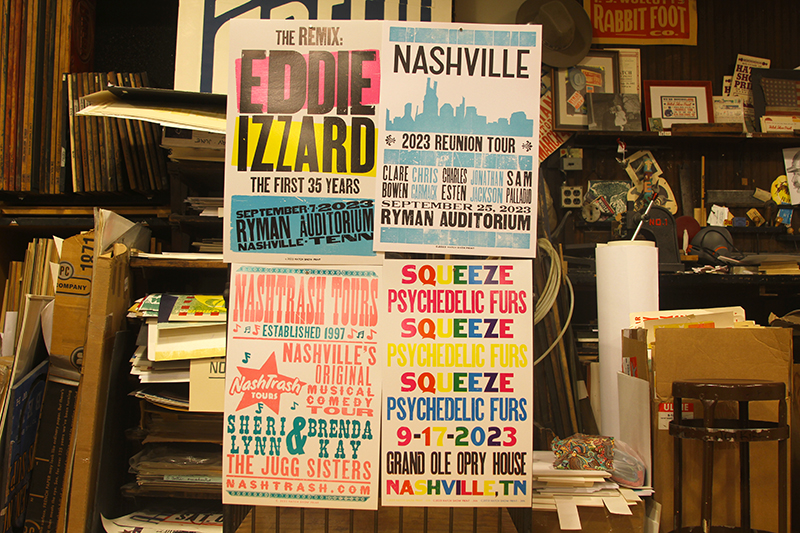 THE REMIX:
EDDIE
IZZARD
THE FIRST 35 YEARS
SEPTEMBER 7, 2023
RYMAN AUDITORIUM
NASHVILLE • TENN
NASHVILLE
2023 REUNION TOUR
CLARE BOWEN
CHRIS CARMACK
CHARLES ESTEN
JONATHAN JACKSON
SAM PALLADIO
SEPTEMBER 25, 2023
RYMAN AUDITORIUM
NASHTRASH TOURS
ESTABLISHED 1997
NASHVILLE'S
ORIGINAL
MUSICAL
COMEDY
TOUR
NashTrash
TOURS
SHERI LYNN & BRENDA KAY
THE JUGG SISTERS
NASHTRASH.COM
SQUEEZE
PSYCHEDELIC FURS
SQUEEZE
PSYCHEDELIC FURS
SQUEEZE
PSYCHEDELIC FURS
9-17-2023
GRAND OLE OPRY HOUSE
NASHVILLE, TN
RABBIT FOOT
CO.
1871
COMPANY
ULINE